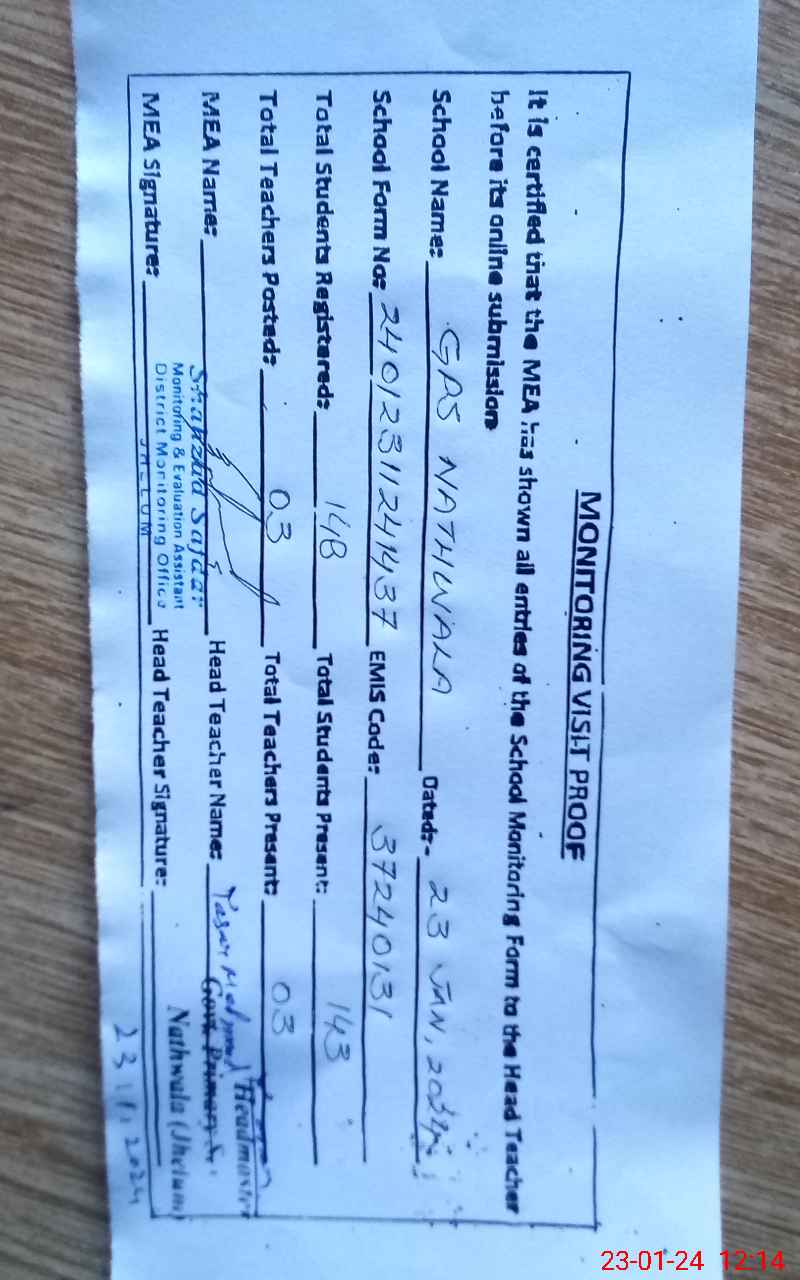 MONITORING VISIT PROOF
It is certified that the MEA has shown all entries of the School Monitoring Form to the Head Teacher
before its online submission
School Name: GPS NATHWALA Dated:- 23 JAN, 2024
School Form No: 24012311241437 EMIS Code: 37240131
Total Students Registered: 148 Total Students Present: 143
Total Teachers Posted: 03 Total Teachers Present: 03
MEA Name: Shahzad Safdar Head Teacher Name: Yasar Mehmood Headmaster
Monitoring & Evaluation Assistant Govt. Primary
District Monitoring Office Nathwala (Jhelum)
JHELUM
MEA Signature: Head Teacher Signature:
23/1/2024
23-01-24 12:14